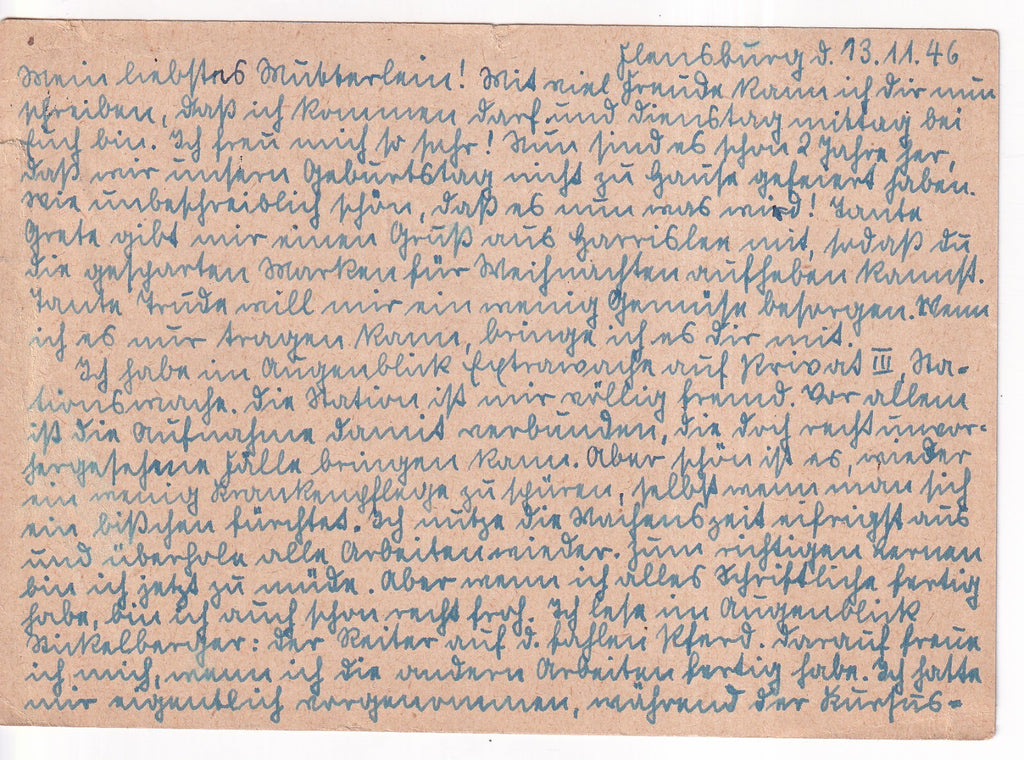 Flensburg d. 13.11.46
Mein liebstes Mutterlein! Mit viel Freude kann ich dir nun
schreiben, daß ich kommen darf und Dienstag mittag bei
Euch bin. Ich freu mich so sehr! Nun sind es schon 2 Jahre her,
daß wir unsern Geburtstag nicht zu Hause gefeiert haben.
Wie unbeschreiblich schön, daß es nun was wird! Tante
Grete gibt mir einen Gruß aus Harrislee mit, sodaß du
die gesparten Marken für Weihnachten aufheben kannst.
Tante Trude will mir ein wenig Gemüse besorgen. Wenn
ich es nur tragen kann, bringe ich es dir mit.
Ich habe im Augenblick Extrawache auf Privat III, Sta-
tionswache. Die Station ist mir völlig fremd. Vor allem
ist die Aufnahme damit verbunden, die doch recht unvor-
hergesehene Fälle bringen kann. Aber schön ist es, wieder
ein wenig Krankenpflege zu spüren, selbst wenn man sich
ein bißchen fürchtet. Ich nutze die Wachenszeit eifrigst aus
und überhole alle Arbeiten wieder. Zum richtigen Lernen
bin ich jetzt zu müde. Aber wenn ich alles Schriftliche fertig
habe, bin ich auch schon recht froh. Ich lese im Augenblick
Stickelberger: Der Reiter auf d. fahlen Pferd. Darauf freue
ich mich, wenn ich die andern Arbeiten fertig habe. Ich hatte
mir eigentlich vorgenommen, während der Kursus-